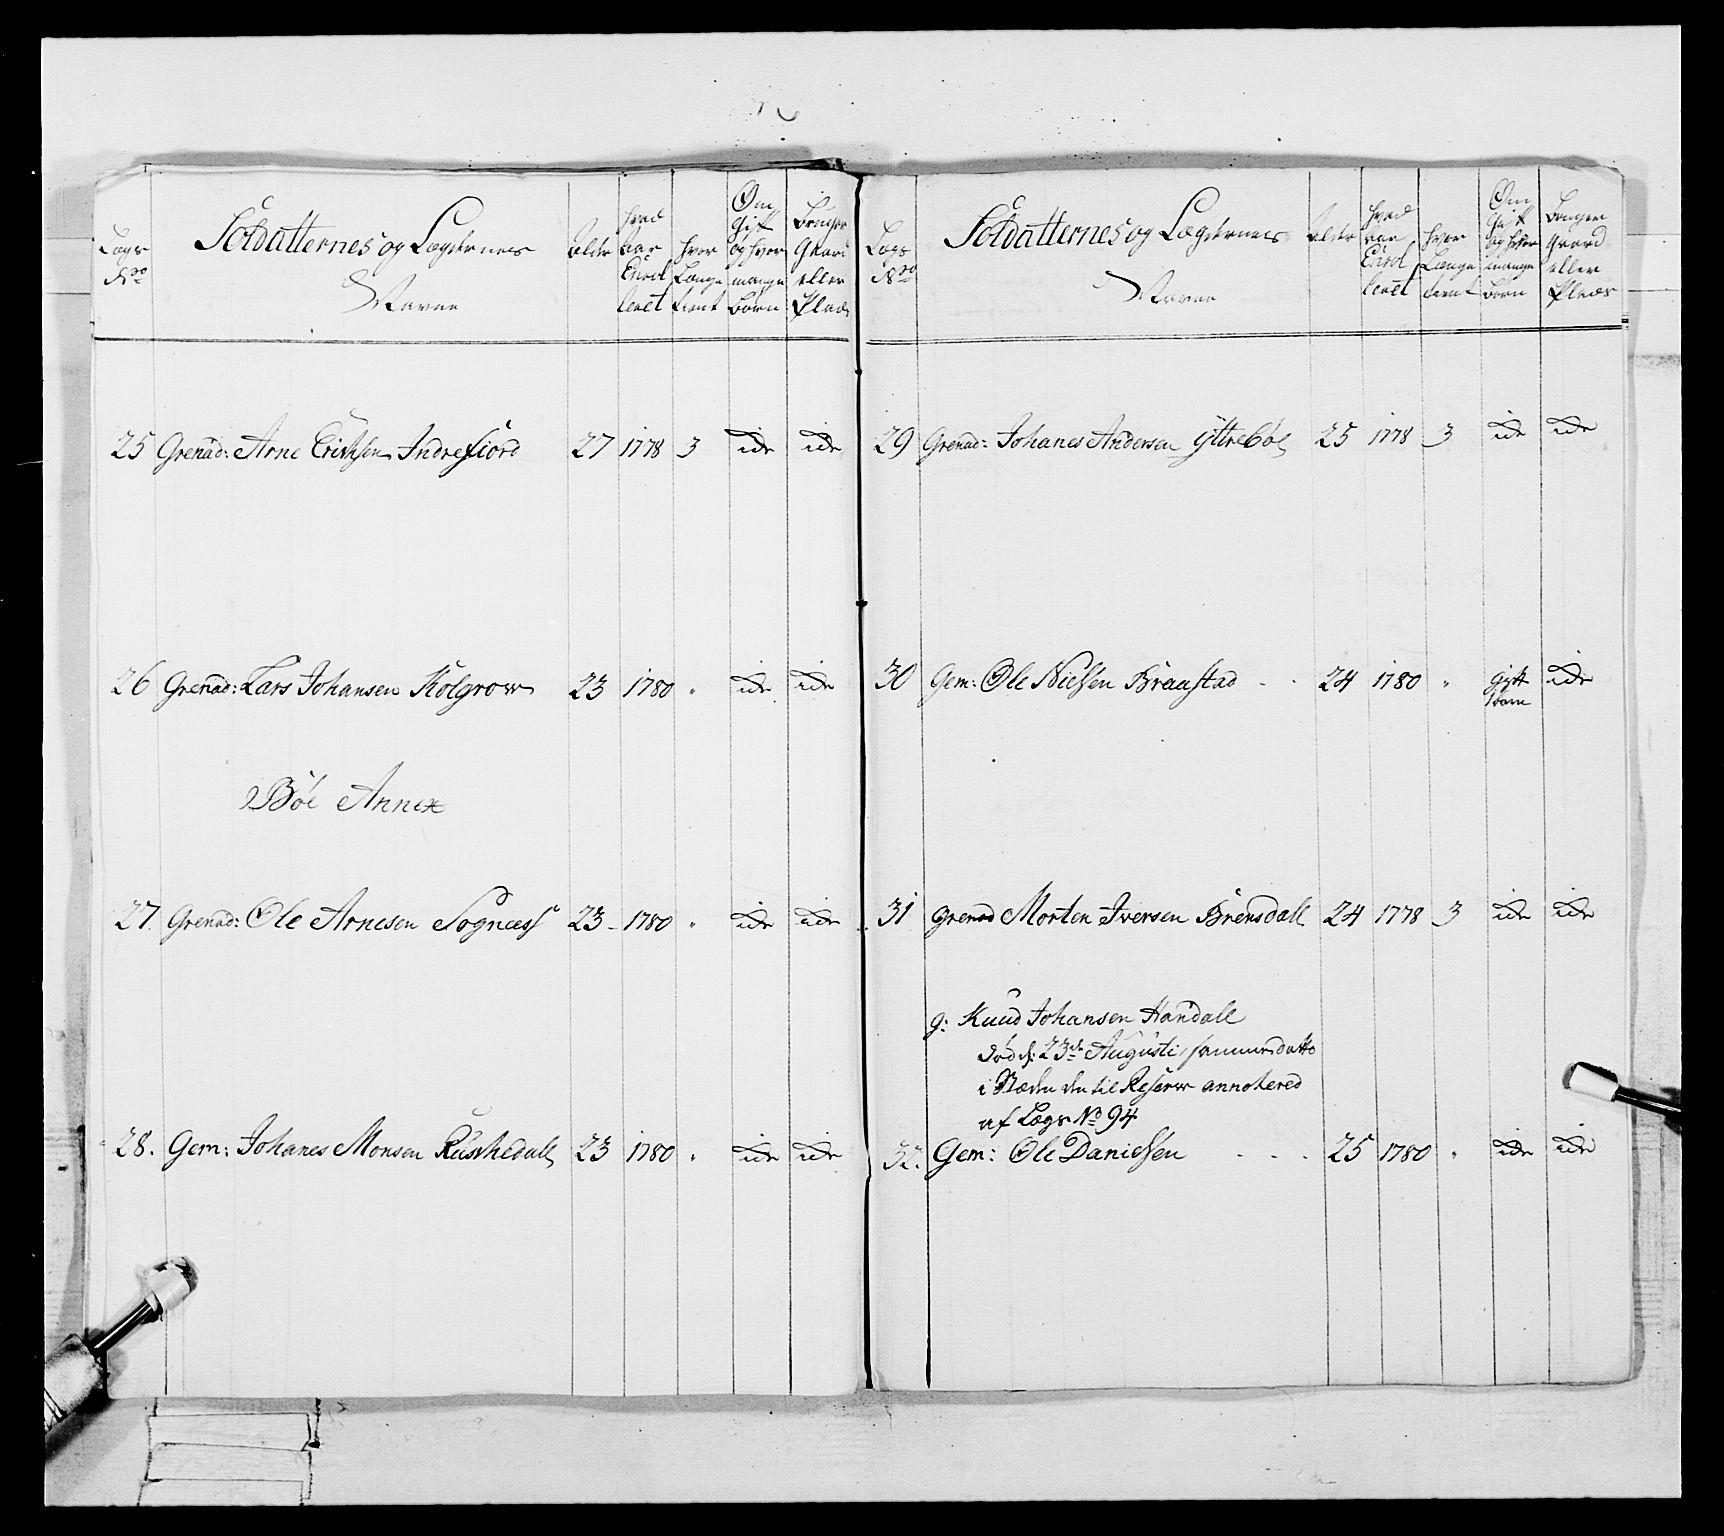 Lægs No
Soldatternes og Lægdernes Navne
Alder
hvad aar Enrolleret
hvor Længe tient
Om Gift og hvor mange børn
Bruger Gaard eller Plads
25 Grenad: Arne Erichsen Indrefiord 27 1778 3 ide ide
26 Grenad: Lars Johansen Kolgrow 23 1780 " ide ide
Böe Annex
27 Grenad: Ole Arnesen Sognæss 23 1780 " ide ide
28. Gem: Johanes Monsen 23 1780 " ide ide
Lægs No
Soldatternes og Lægdernes Navne
Alder
hvad aar Enrolleret
hvor Længe tient
Om Gift og hvor mange børn
Bruger Gaard eller Plads
29 Grenad: Johanes Andersen Yttreböe 25 1778 3 ide ide
30 Gem: Ole Nielsen Braastad - - 24 1780 " gift ide
1 barn
31 Grenad Morten Iversen Brensdall 24 1778 3 ide ide
g: Knud Johansen Handall
död d: 23de Augusti
i Stæden den til Reserv annotered
af Lægs No 94
32. Gem: Ole Danielsen - - - 25 1780 " ide ide